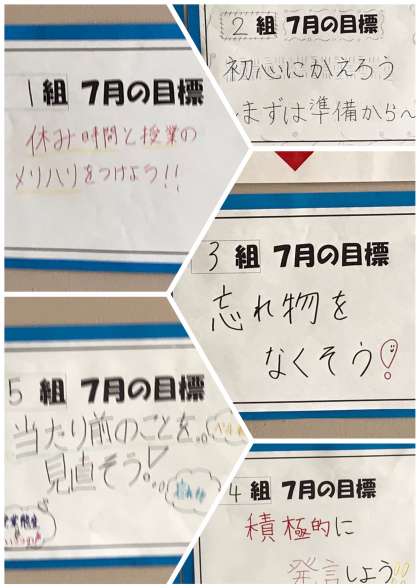 1組 7月の目標
休み時間と授業の
メリハリをつけよう!!
2組 7月の目標
初心にかえろう
まずは準備から〜
3組 7月の目標
忘れ物を
なくそう!
5組 7月の目標
当たり前のことを。。
見直そう!
4組 7月の目標
積極的に
発言しよう!!